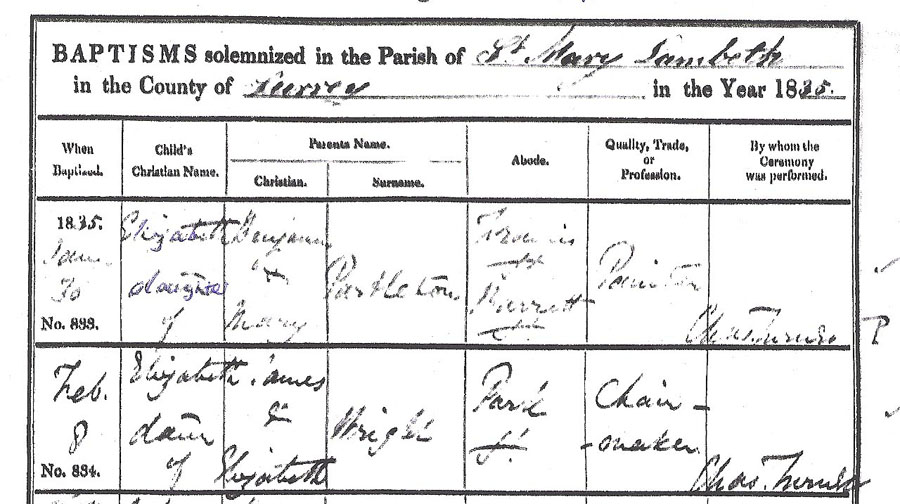 BAPTISMS solemnized in the Parish of St. Mary Lambeth
in the County of Surrey in the Year 1835.
When Baptized.
Child's Christian Name.
Parents Name.
Christian.
Surname.
Abode.
Quality, Trade, or Profession.
By whom the Ceremony was performed.
1835.
Jan.
30
No. 833.
Elizabeth
daughter
of
Benjamin
&
Mary
Partleton
Francis
St
Painter
Chas. Turner
P
Feb.
8
No. 834.
Elizabeth
daur
of
James
&
Elizabeth
Wright
Park
St.
Chair-
-maker
Chas. Turner